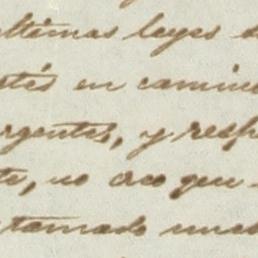 últimas leyes d
stés en camino
rgentes, y resp
te, no creo que
tamado much